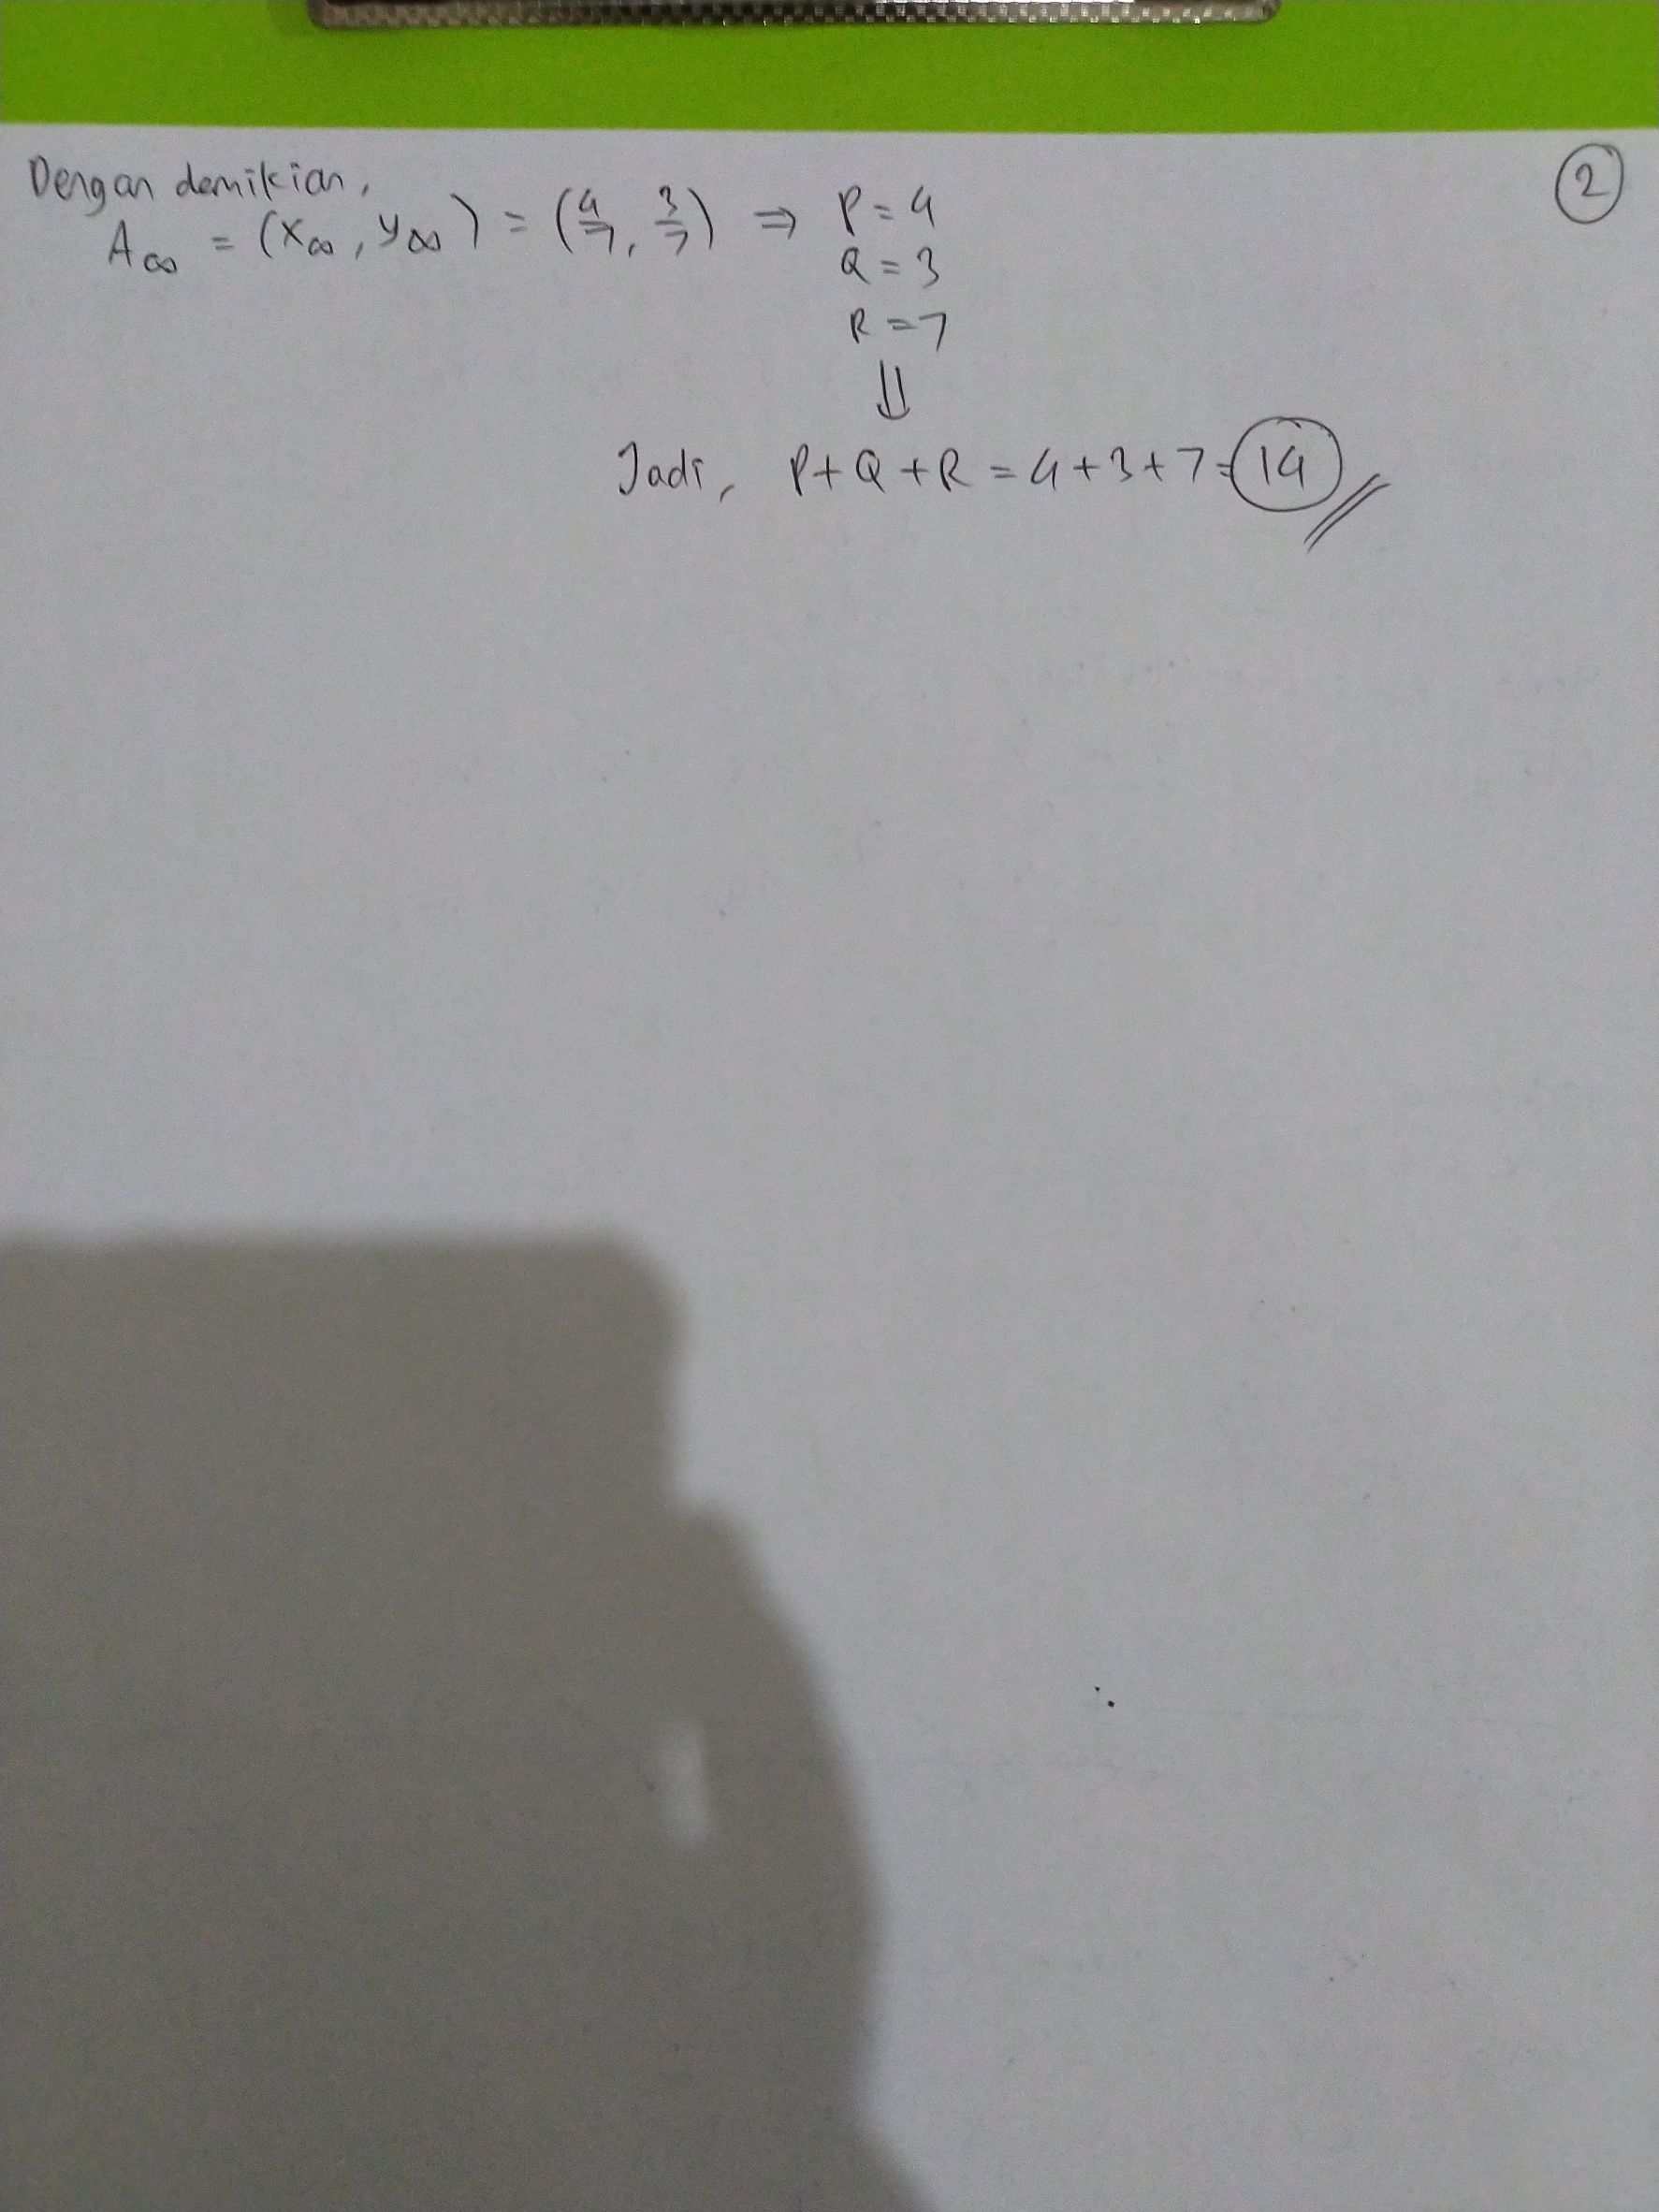 2
Dengan demikian,
A∞ = (x∞, y∞) = (4/7, 3/7) ⇒ P = 4
Q = 3
R = 7
⇓
Jadi, P + Q + R = 4 + 3 + 7 = 14 //